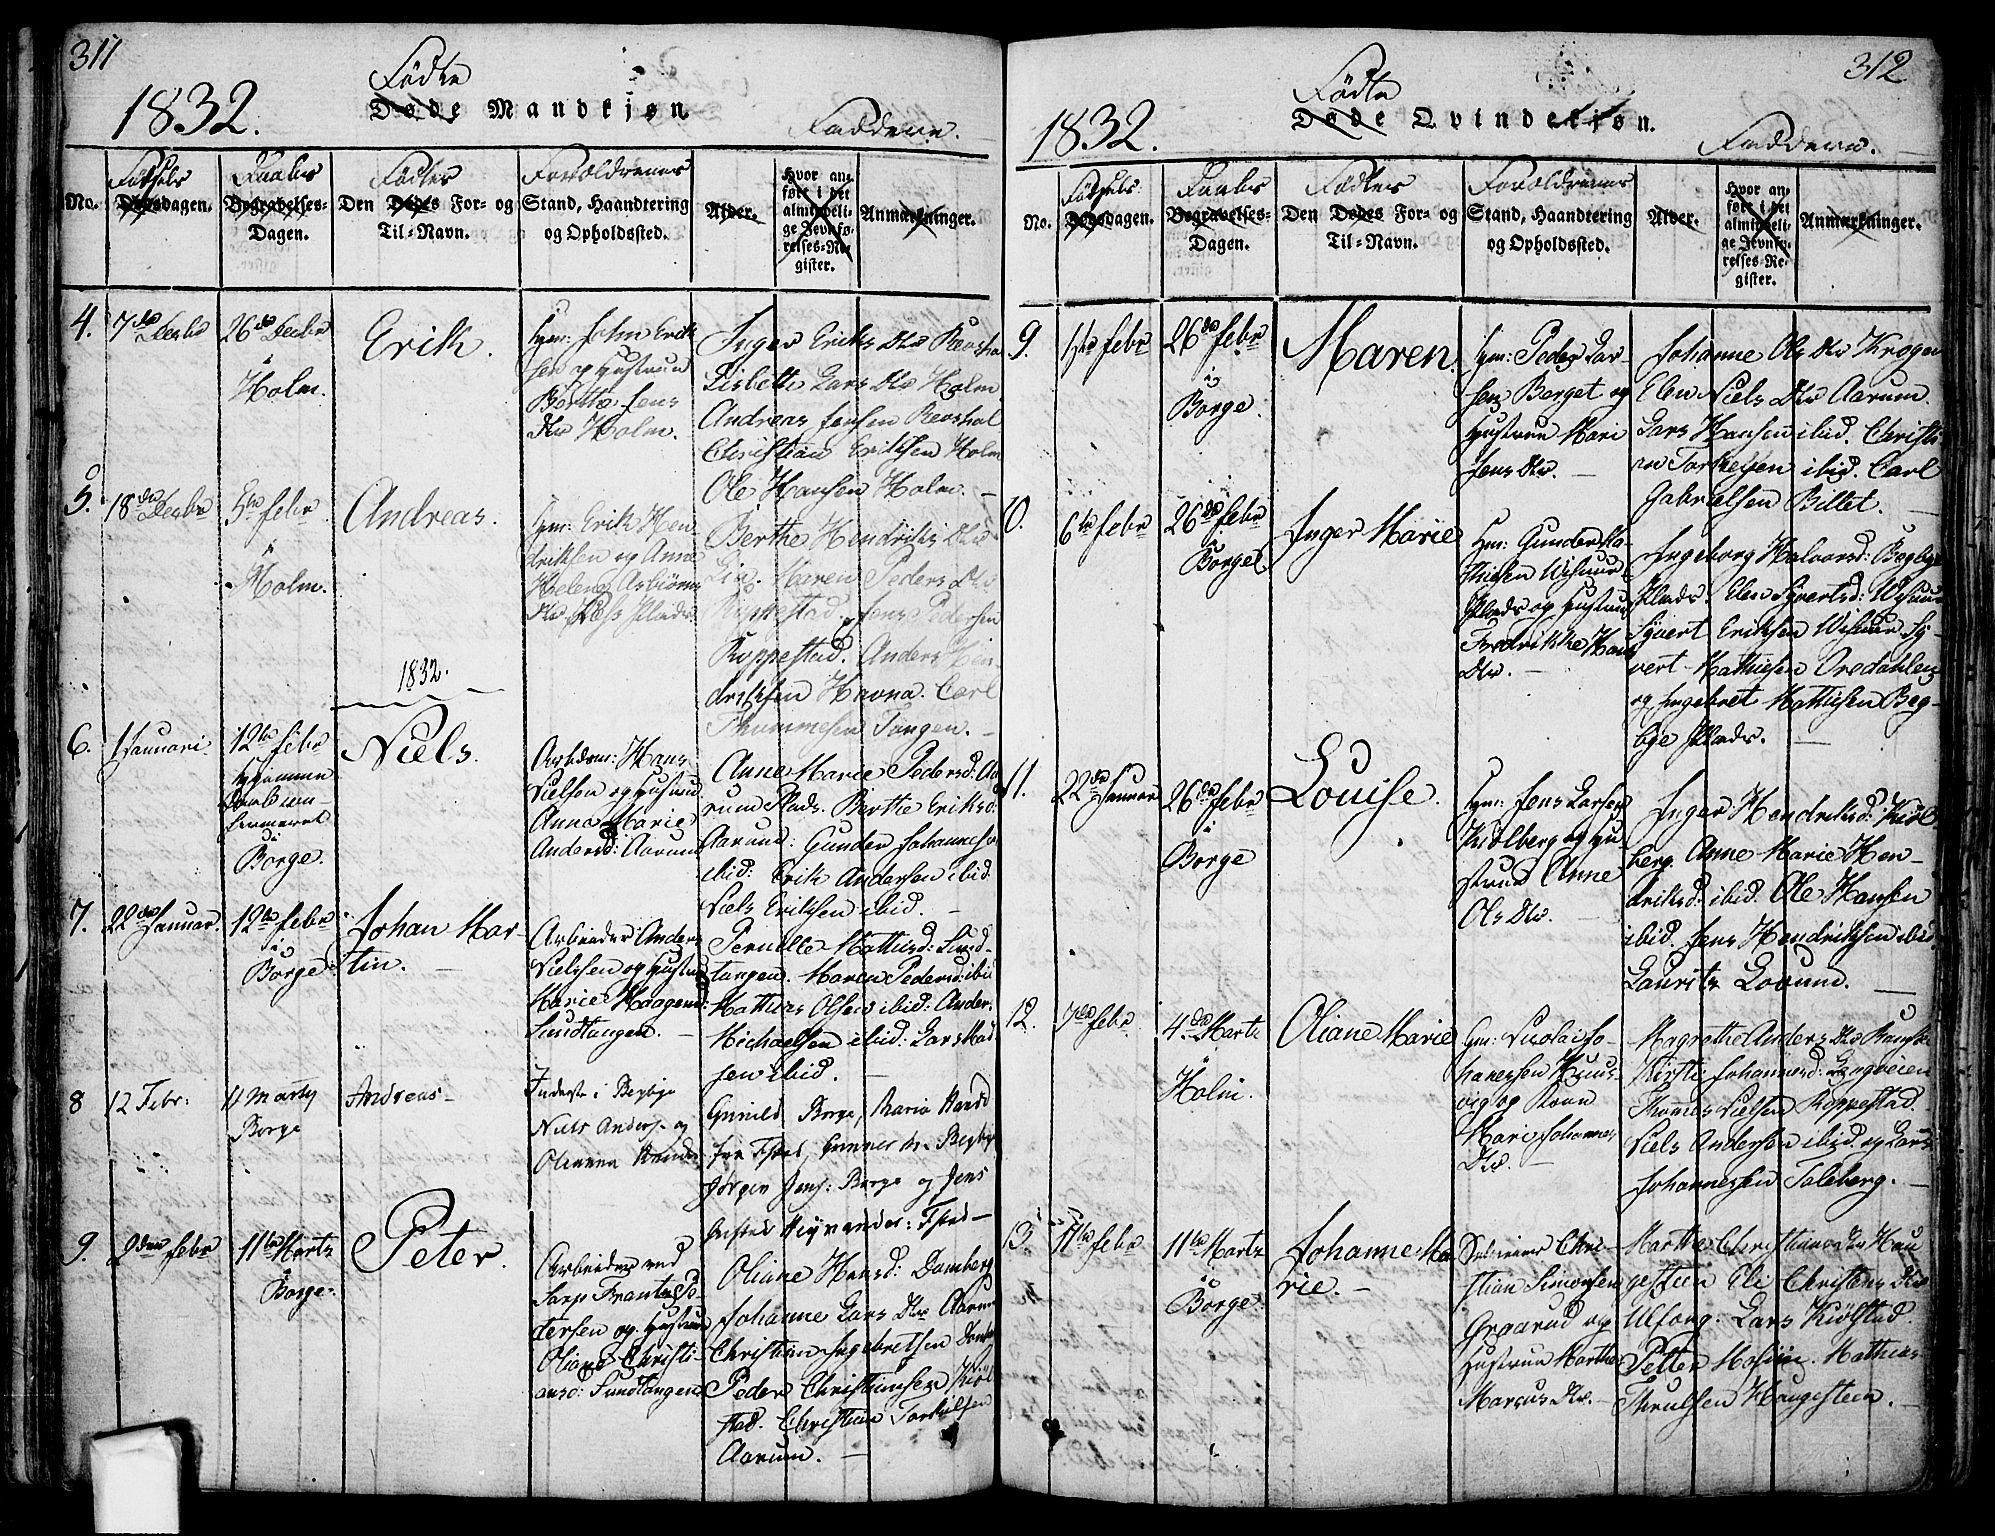 311
1832.
Fødte
Døde Mandkjøn.
Faddere.
No.
Fødsels
Dødsdagen.
Daabs
Begravelses-
Dagen.
Fødtes
Den Dødes For- og
Til-Navn.
Forældrenes
Stand, Haandtering
og Opholdssted.
Alder.
Hvor an-
ført i det
almindeli-
ge Jevnfø-
relses-Re-
gister.
Anmærkninger.
4.
7de Decbr
26de Decbr
i
Holm.
Erik.
Gm: John Erik
sen og Hustrue
Berthe Jens
Dtr Holm.
Inger Eriks Dtr
Lisbeth Lars Dtr Holm
Andreas Jensen
Christian Eriksen Holm
Ole Hansen Holm.
5.
18de Decbr
5te Febr
i
Holm.
Andreas.
Gm: Erik Hen
driksen og Anne
Helene Asbiørns
Dtr
Berthe Hendriks Dtr
Maren Peders Dtr
Roppestad. Jens Pedersen
Roppestad. Anders Hen
driksen Havna. Carl
Thommesen Tangen.
1832.
6.
1 Januari
12te Febr
hjemme
Daab
i
Borge.
Niels.
Arbdsm: Hans
Nielsen og Hustrue
Anne Marie
Andersd: Aarum
Anne Marie Pedersd: Aa
rum Plads. Berthe Eriksd:
Aarum: Gunder Johannesen
ibid: Erik Andersen ibid.
Niels Eriksen ibid.
7.
22de Januar.
12te Febr
i
Borge
Johan Mar-
tin.
Arbeider Anders
Nielsen og Hustrue
Marie Haagensd:
Sundtangen.
Pernille Mathisd: Sund
tangen. Maren Pedersd: ibid
Mathias Olsen ibid: Anders
Michaelsen ibid: Lars Mad
sen ibid.
8
12 Febr:
11 Marty
Borge
Andreas
Inderste i Begbye
Niels Anders: og
Gunild Borge, Maria Hansd
fra Begbye
Jørgen Jens: Borge og Jens
9.
2den Febr
11te Marts
i
Borge.
Peter.
Arbeider ved
Sarp Frants Pe-
dersen og Hustrue
Oliane Christi-
ansd: Sundtangen
Oliane Hansd: Damberg
Johanne Lars Dtr Aarum
Christian Ingebretsen
Peder Christiansen Kiøl
stad. Christian Torkelsen
Aarum.
312
1832.
Fødte
Døde Qvindekjøn.
Faddere.
No.
Fødsels
Dødsdagen.
Daabs
Begravelses-
Dagen.
Fødtes
Den Dødes For- og
Til-Navn.
Forældrenes
Stand, Haandtering
og Opholdssted.
Alder.
Hvor an-
ført i det
almindeli-
ge Jevnfø-
relses-Re-
gister.
Anmærkninger.
9.
1ste Febr
26de Febr
i
Borge.
Maren.
Gm: Peder Lar-
sen Berget og
Hustrue Mari
Jens Dtr.
Johanne Ols Dtr Krogen
Elen Niels Dtr Aarum.
Lars Hansen ibid. Christi
an Torkelsen ibid. Carl
Gabrielsen Billet.
10.
6te Febr
26de Febr
i
Borge.
Inger Marie
Gm: Gunder Ma-
thiesen Wisuur
Plads og Hustrue
Fredrikke Hans
Dtr.
Ingeborg Halvorsd: Begbye
Plads. Elen Syvertsd: Wisuur
Syvert Eriksen Wisuur Sy-
vert Mathiesen Oredahlen
og Ingebret Mathisen Beg-
bye Plads.
11.
22de Januar
26de Febr
i
Borge
Louise.
Gm: Jens Larsen
Kidlberg og Hu-
strue Anne
Ols Dtr.
Inger Hendriksd: Kiøl
berg. Anne Marie Hen-
driksd: ibid. Ole Hansen
ibid. Jens Hendriksen ibid.
Laurits Lorum.
12.
7de Febr
4de Marts
i
Holm.
Oliane Marie
Gm: Nicolai Jo-
hannessen Huus-
vig og Kone
Mari Johannes
Dtr.
Magrethe Anders Dtr
Kirsti Johannesd:
Thomas Nielsen Roppestad.
Niels Andersen ibid. og Lars
Johannessen Taleberg.
13.
11te Febr
11te Marts
i
Borge
Johanne Ma
rie.
Selveier Chri-
stian Simonsen
Graarud og
Hustrue Marthe
Marcus Dtr.
Marthe Christians Dtr Hau
gesteen Eli Christens Dtr
Ulfong. Lars Kiølstad.
Petter Mosiin. Mathias
Thrulsen Haugesteen.